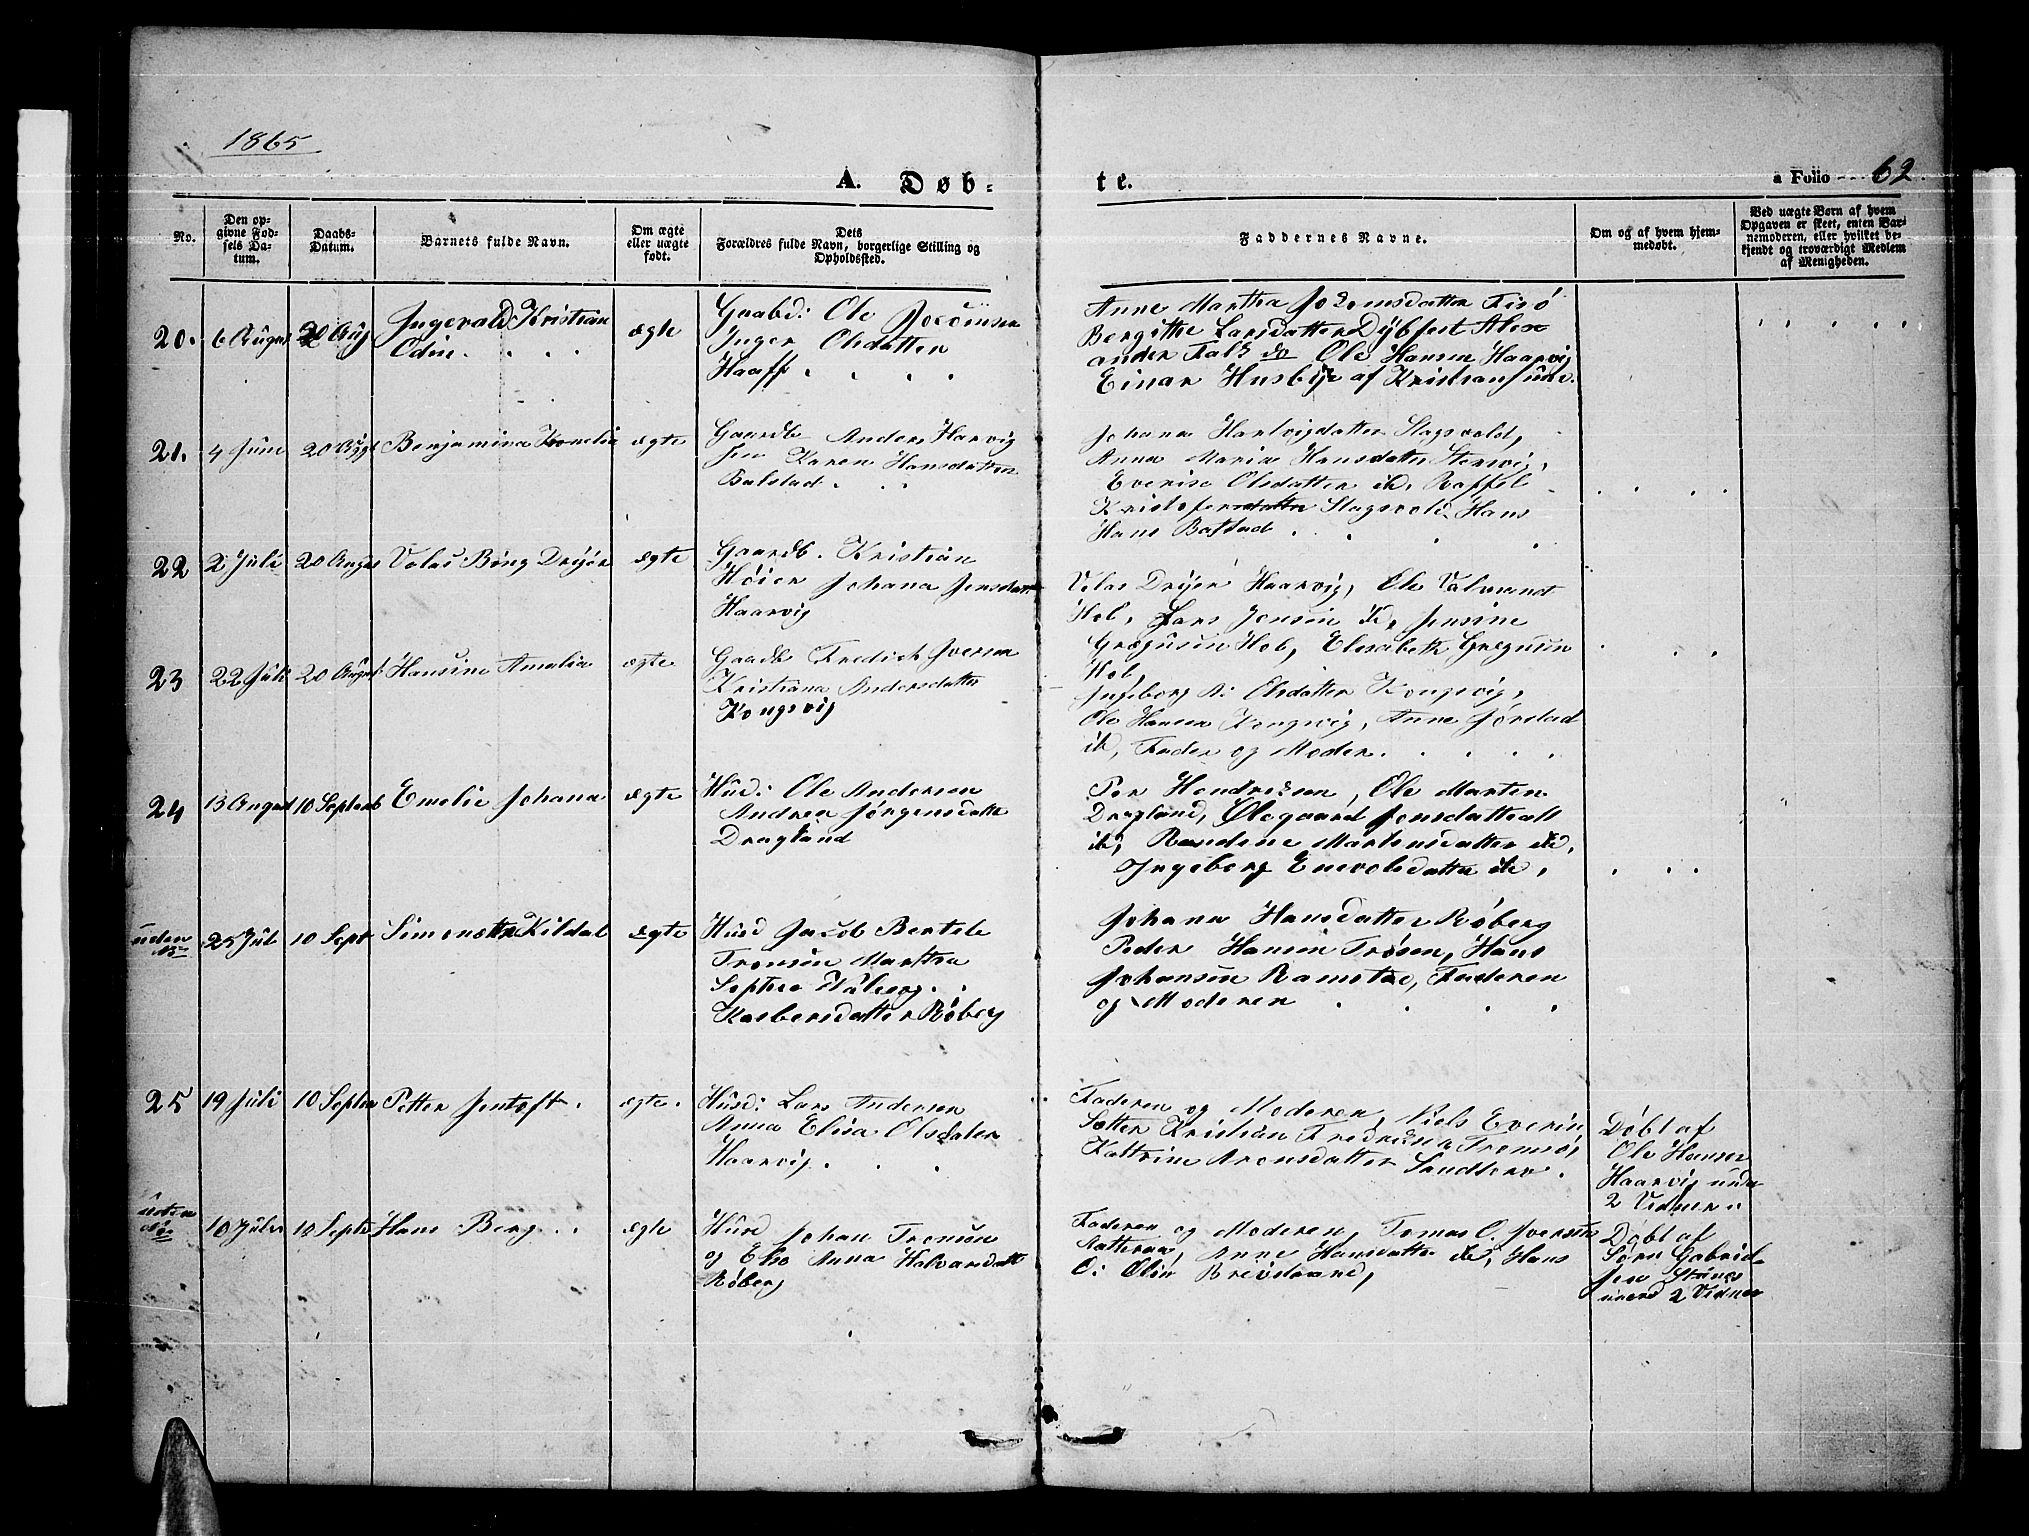 1865
A. Døb-
te.
a Folio 62.
No.
Den op-
givne Fød-
sels Da-
tum.
Daabs-
Datum.
Barnets fulde Navn.
Om ægte
eller uægte
født.
Dets
Forældres fulde Navn, borgerlige Stilling og
Opholdssted.
Faddernes Navne.
Om og af hvem hjem-
medøbt.
Ved uægte Børn af hvem
Opgaven er skeet, enten Bar-
nemoderen, eller hvilket be-
kjendt og troværdigt Medlem
af Menigheden.
20. 6 August 20 Aug Ingevald Kristian
Odin.
ægte
Gaabd: Ole
Inger Olsdatter
Haaff
Anne Martha
Bergitte Larsdatter Dybfest Alex
ander Falk do Ole Hansen Haarvig
Einar Husbye af Kristiansund.
21. 4 Juni 20 Aug Benjamina Kornelia ægte
Gaardb Anders Harvig
sen Karen Hansdatter
Balstad.
Johana Hartvigdatter Slagsvold,
Anna Maria Hansdatter
Everise Olsdatter ib, Raffel
Kristofer Slagsvold Hans
Hans Bastad
22 2 Juli 20 August Volas Bing Dreyer ægte
Gaardb. Kristian
Høier Johana Jensdatter
Haarvig
Volas Dreyer Haarvig, Ole Valmand
Hol, Lars Jensen ib, Jensine
Gregusen Hol, Elesabeth Gregusen
Hol,
23 22 Juli 20 August Hansine Amalia ægte
Gaardb Fredrik Iversen
Kristiana Andersdatter
Kongsvig
Ingeborg A: Olsdatter Kongsvig,
Ole Hansen Kongsvig, Anne Jørstad
ib, Fader og Moder.
24 13 August 10 Septemb Emelie Johana ægte
Husd: Ole Andersen
Andrea Jørgensdatte
Dragland
Per Hendriksen, Ole Marten
Dragland, Olegaard Jensdatter
ib, Randine Mortensdatter ib,
Ingeborg Enevolsdatter ib,
uden
No
25 Juli 10 Sept Simonette Kildal ægte
Husd Jacob Bertel
Tronsen Martha
Kasbersdatter Røberg
Johana Hansdatter Røberg
Peder Hansen Trøsen, Hans
Johansen Ramstad, Faderen
og Moderen
25 19 Juli 10 Septem Petter Jentoft. ægte.
Husd: Lars Andersen
Anna Elisa Olsdater
Haarvig.
Faderen og Moderen, Niels Everin
Sætter Kristian Fredriksen Tromsø,
Kattrine Aronsdatter Sandtorv.
Døbt af
Ole Hansen
Haarvig under
2 Vidner.
uden
No.
10 Juli 10 Septe Hans Berg ægte
Husd Johan Tronsen
og Else Anna Halvarsdatt
Røberg
Faderen og Moderen, Tomas C. Iversen
Anne Hansdatter ib, Hans
O: Olsen Breistrand,
Døbt af
Sørn Gabriel-
sen
unerd 2 Vidner